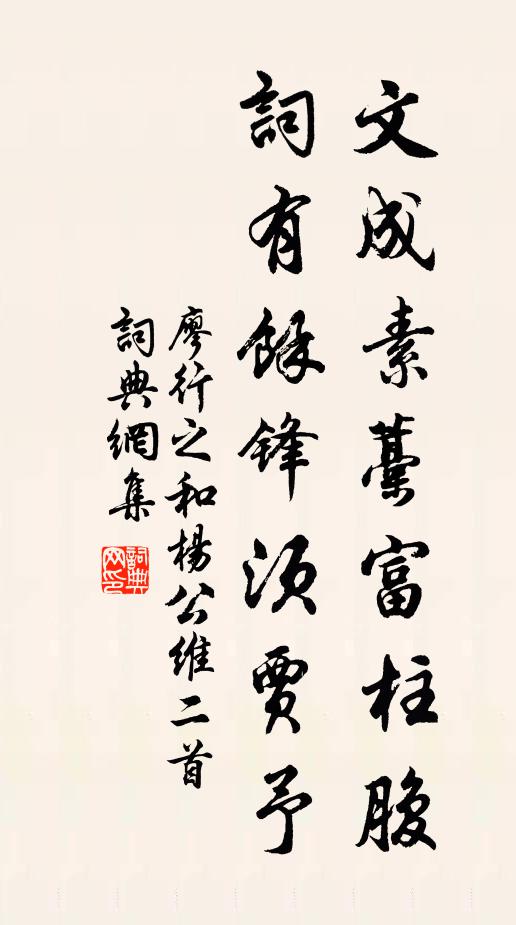 文成素藁富柱腹
詞有餘鋒須賈予
廖行之和楊公維二首
詞典網集
詞典網印